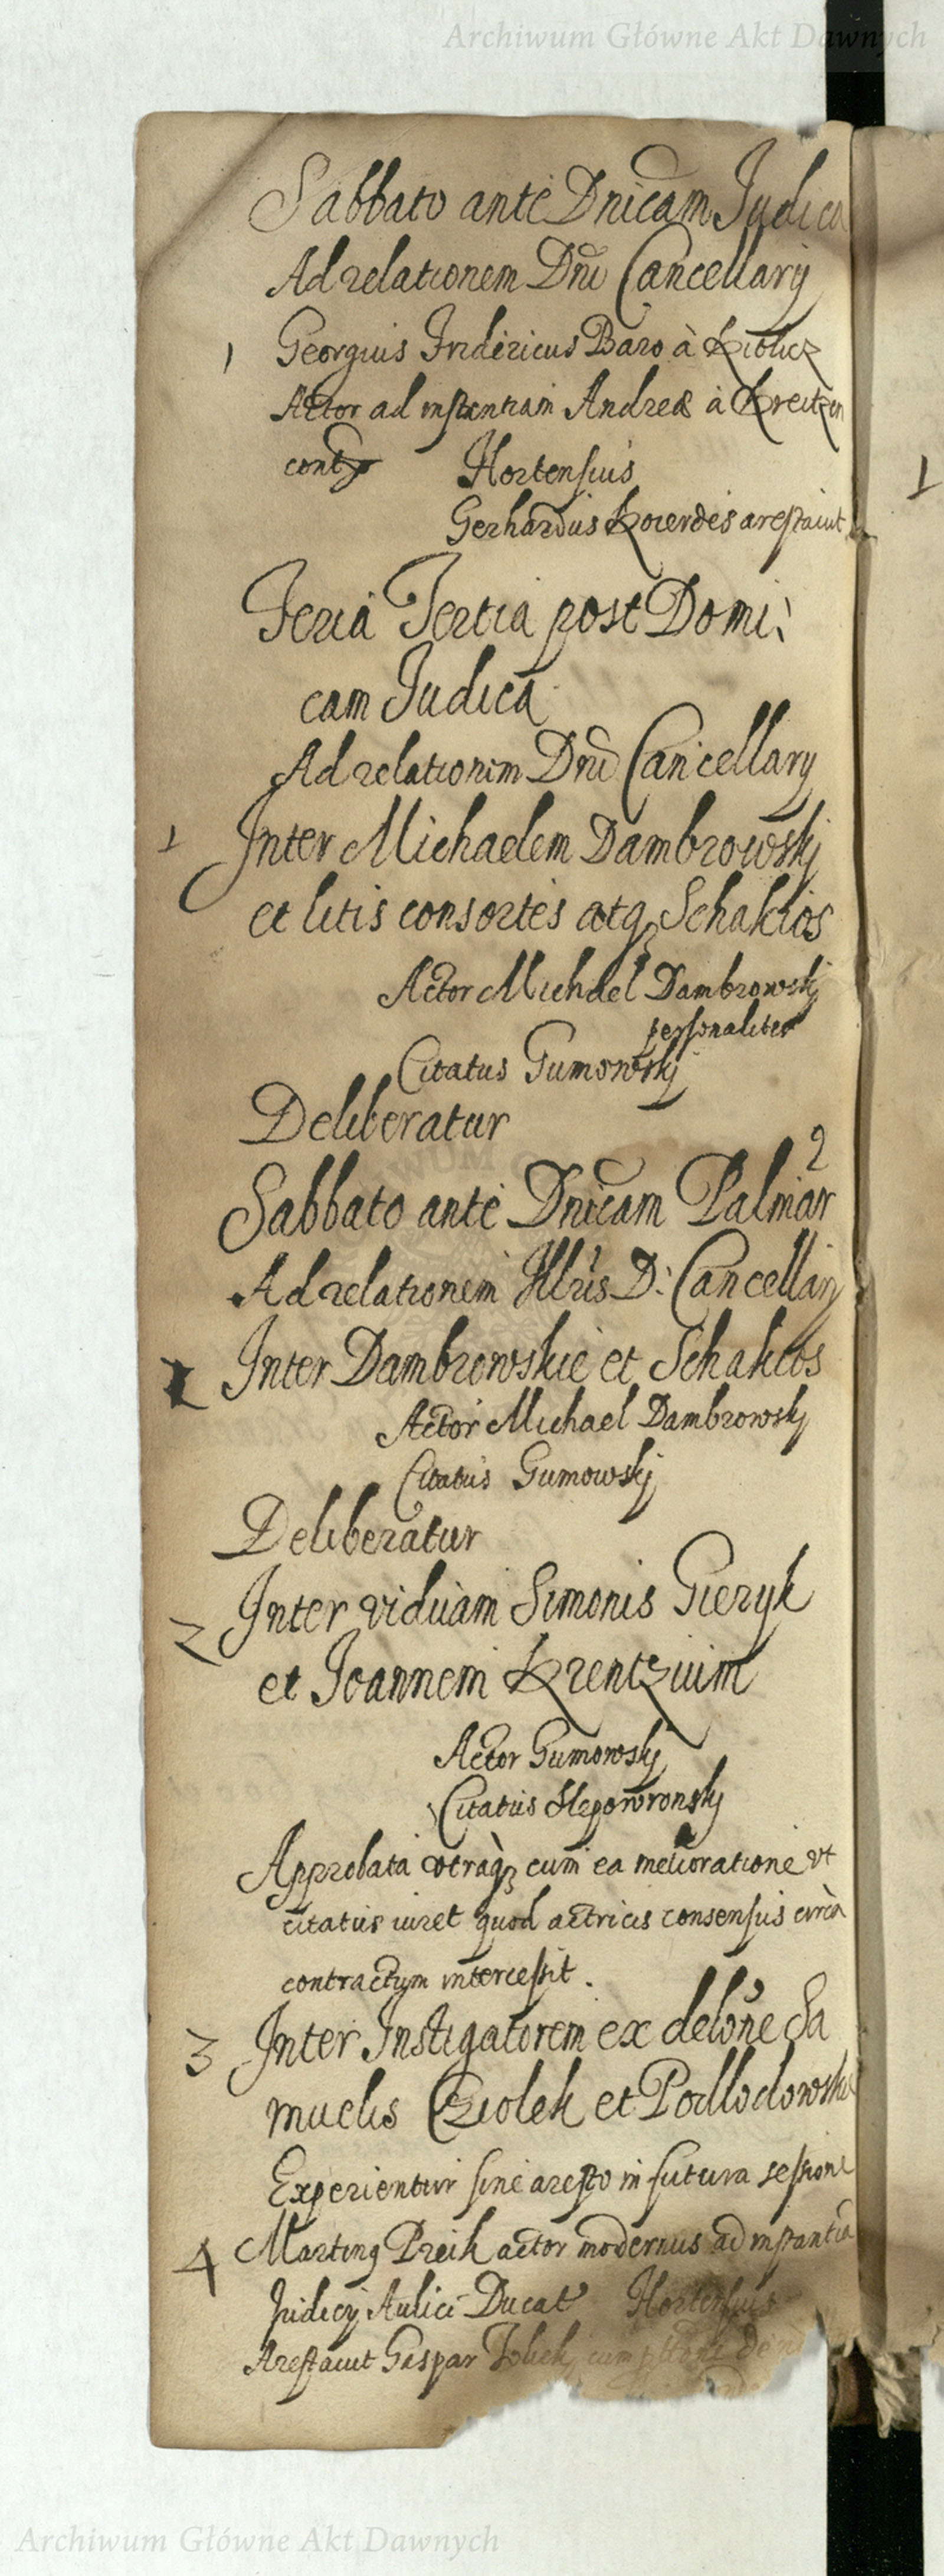 Archiwum Główne Akt Dawnych
Sabbato ante Dnicam Judica
Ad relationem Dni Cancellarij
1 Georgius Fridericus Baro à Kitlicz
Actor ad instantiam Andreæ à Kreitzen
contra Hortensius
Gerhardus Koierdes arestavit
1
Feria Tertia post Domi:
cam Judica
Ad relationem Dni Cancellarij
1 Inter Michaelem Dambrowskj
et litis consortes atq Schakios
Actor Michael Dambrowskj
personaliter
Citatus Gumowskj
Deliberatur
2
Sabbato ante Dnicam Palmar
Ad relationem Illris D: Cancellarij
1 Inter Dambrowskie et Schakios
Actor Michael Dambrowskj
Citatus Gumowskj
Deliberatur
2 Inter viduam Simonis Gieryk
et Joannem Krentzium
Actor Gumowskj
Citatus Slepowronskj
Approbata utraq cum ea melioratione ut
citatus iuret quod actricis consensus circa
contractum intercessit.
3 Inter Instigatorem ex delõne Sa
muelis Cziolek et Podlodowski
Experientur sine aresto in futura sessione
4 Martinq Preik actor modernus ad instantia
Judicij Aulici Ducat Hortensius
Arestavit Gaspar cum
Archiwum Główne Akt Dawnych